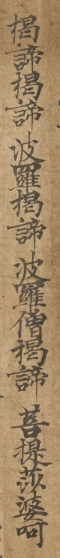 揭諦揭諦 波羅揭諦 波羅僧揭諦 菩提莎婆呵